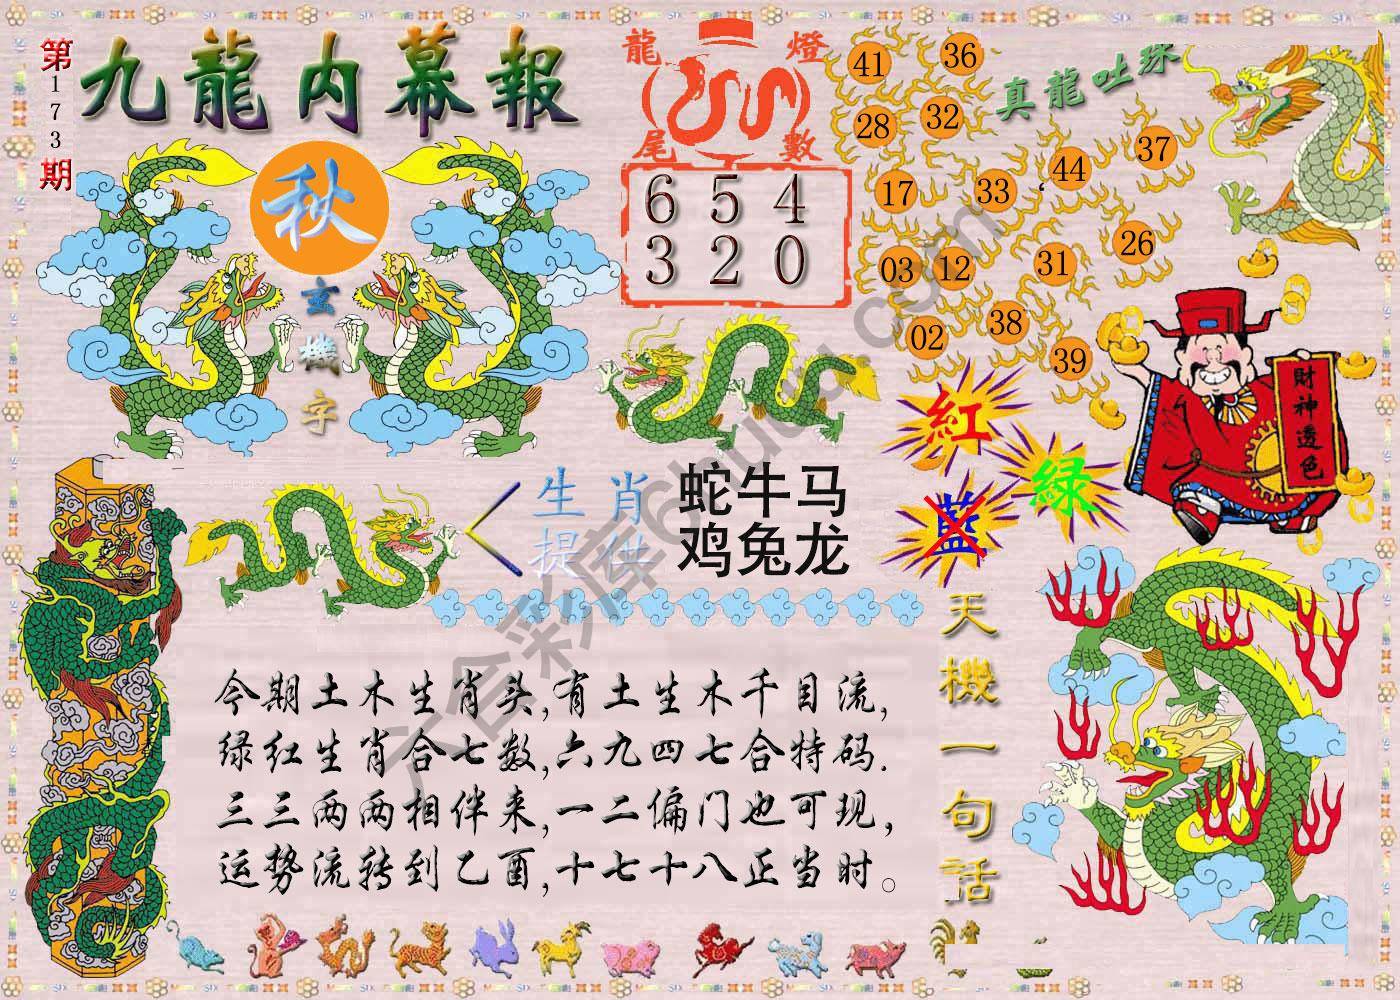 第173期
九龍内幕報
秋
玄機字
龍燈
尾數
6 5 4
3 2 0
真龍吐珠
41
36
28
32
44
37
17
33
26
03
12
31
02
38
39
財神透色
紅
绿
藍
生肖
提供
蛇牛马
鸡兔龙
天機一句話
今期土木生肖头,有土生木千目流,
绿红生肖合七数,六九四七合特码.
三三两两相伴来,一二偏门也可现,
运势流转到乙酉,十七十八正当时。
六合彩库6huku.com